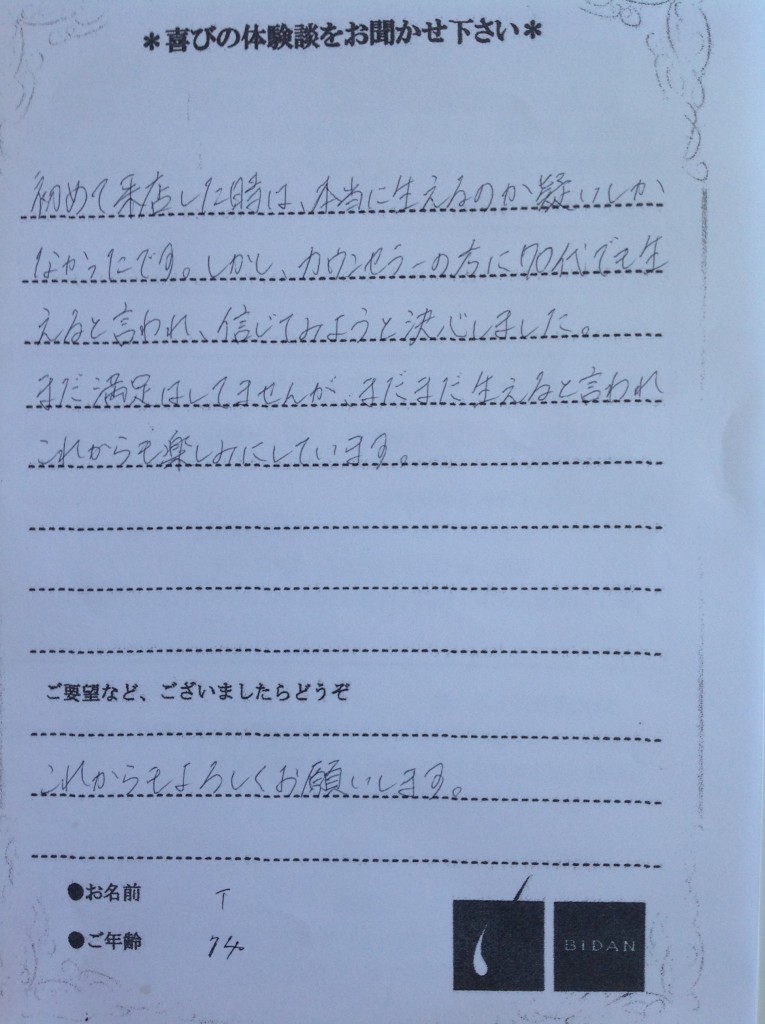 ＊喜びの体験談をお聞かせ下さい＊
初めて来店した時は、本当に生えるのか疑いしか
なかったです。しかし、カウンセラーの方に70代でも生
えると言われ、信じてみようと決心しました。
まだ満足はしてませんが、まだまだ生えると言われ
これからも楽しみにしています。
ご要望など、ございましたらどうぞ
これからもよろしくお願いします。
●お名前 T
●ご年齢 74
BIDAN